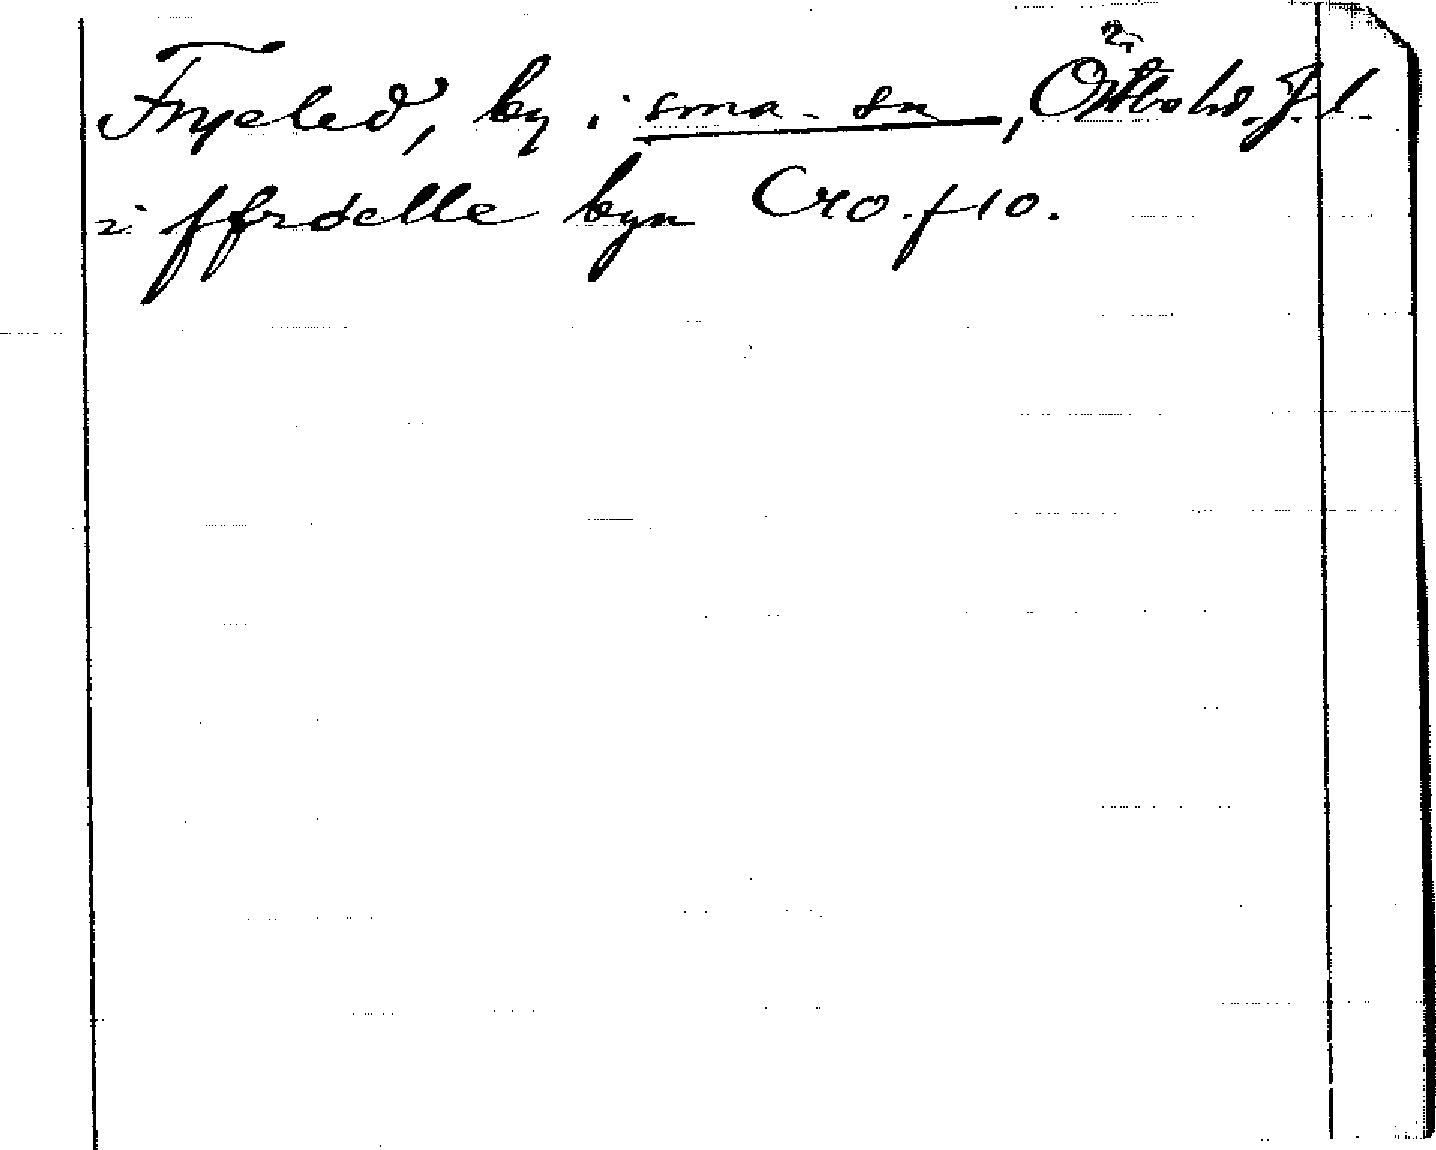 Fryeled, by i sma. sn, Östbo hd. J. l.
i ffrdelle byn Cro. f 10.